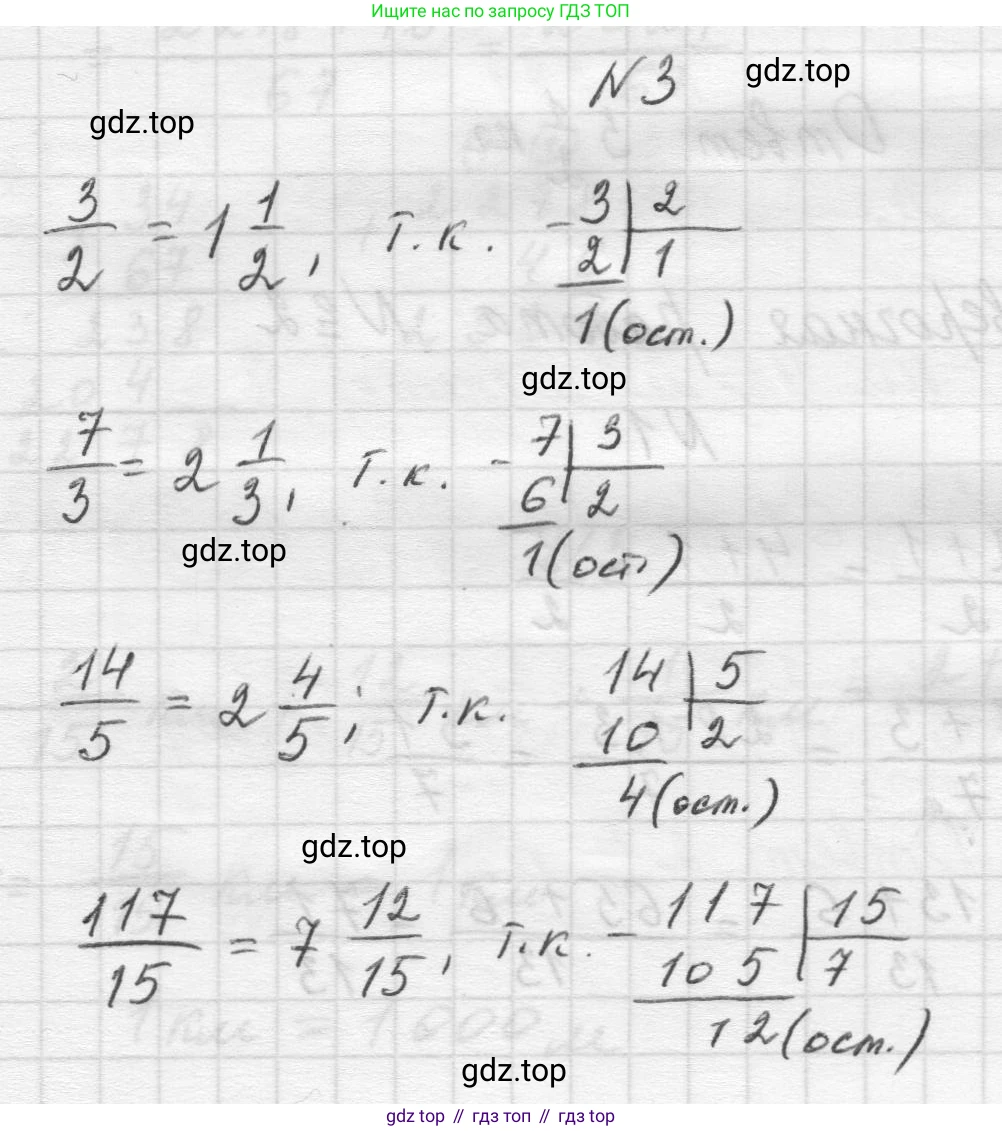 Ищите нас по запросу ГДЗ ТОП
N 3
gdz.top
gdz.top
3/2 = 1 1/2, т.к. - 3 | 2
2 | 1
1 (ост.)
gdz.top
7/3 = 2 1/3, т.к. - 7 | 3
6 | 2
1 (ост.)
gdz.top
14/5 = 2 4/5; т.к. 14 | 5
10 | 2
4 (ост.)
gdz.top
117/15 = 7 12/15, т.к. - 117 | 15
105 | 7
12 (ост.)
gdz.top
gdz top // гдз топ // гдз top